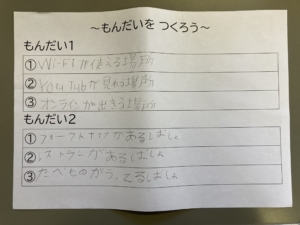 ～もんだいを つくろう～
もんだい1
①Wi-Fiが使える場所
②You Tubが見れる場所
③オンラインが出きる場所
もんだい2
①フードコートがあるばしょ
②レストランがあるばしょ
③たべものがうってるばしょ